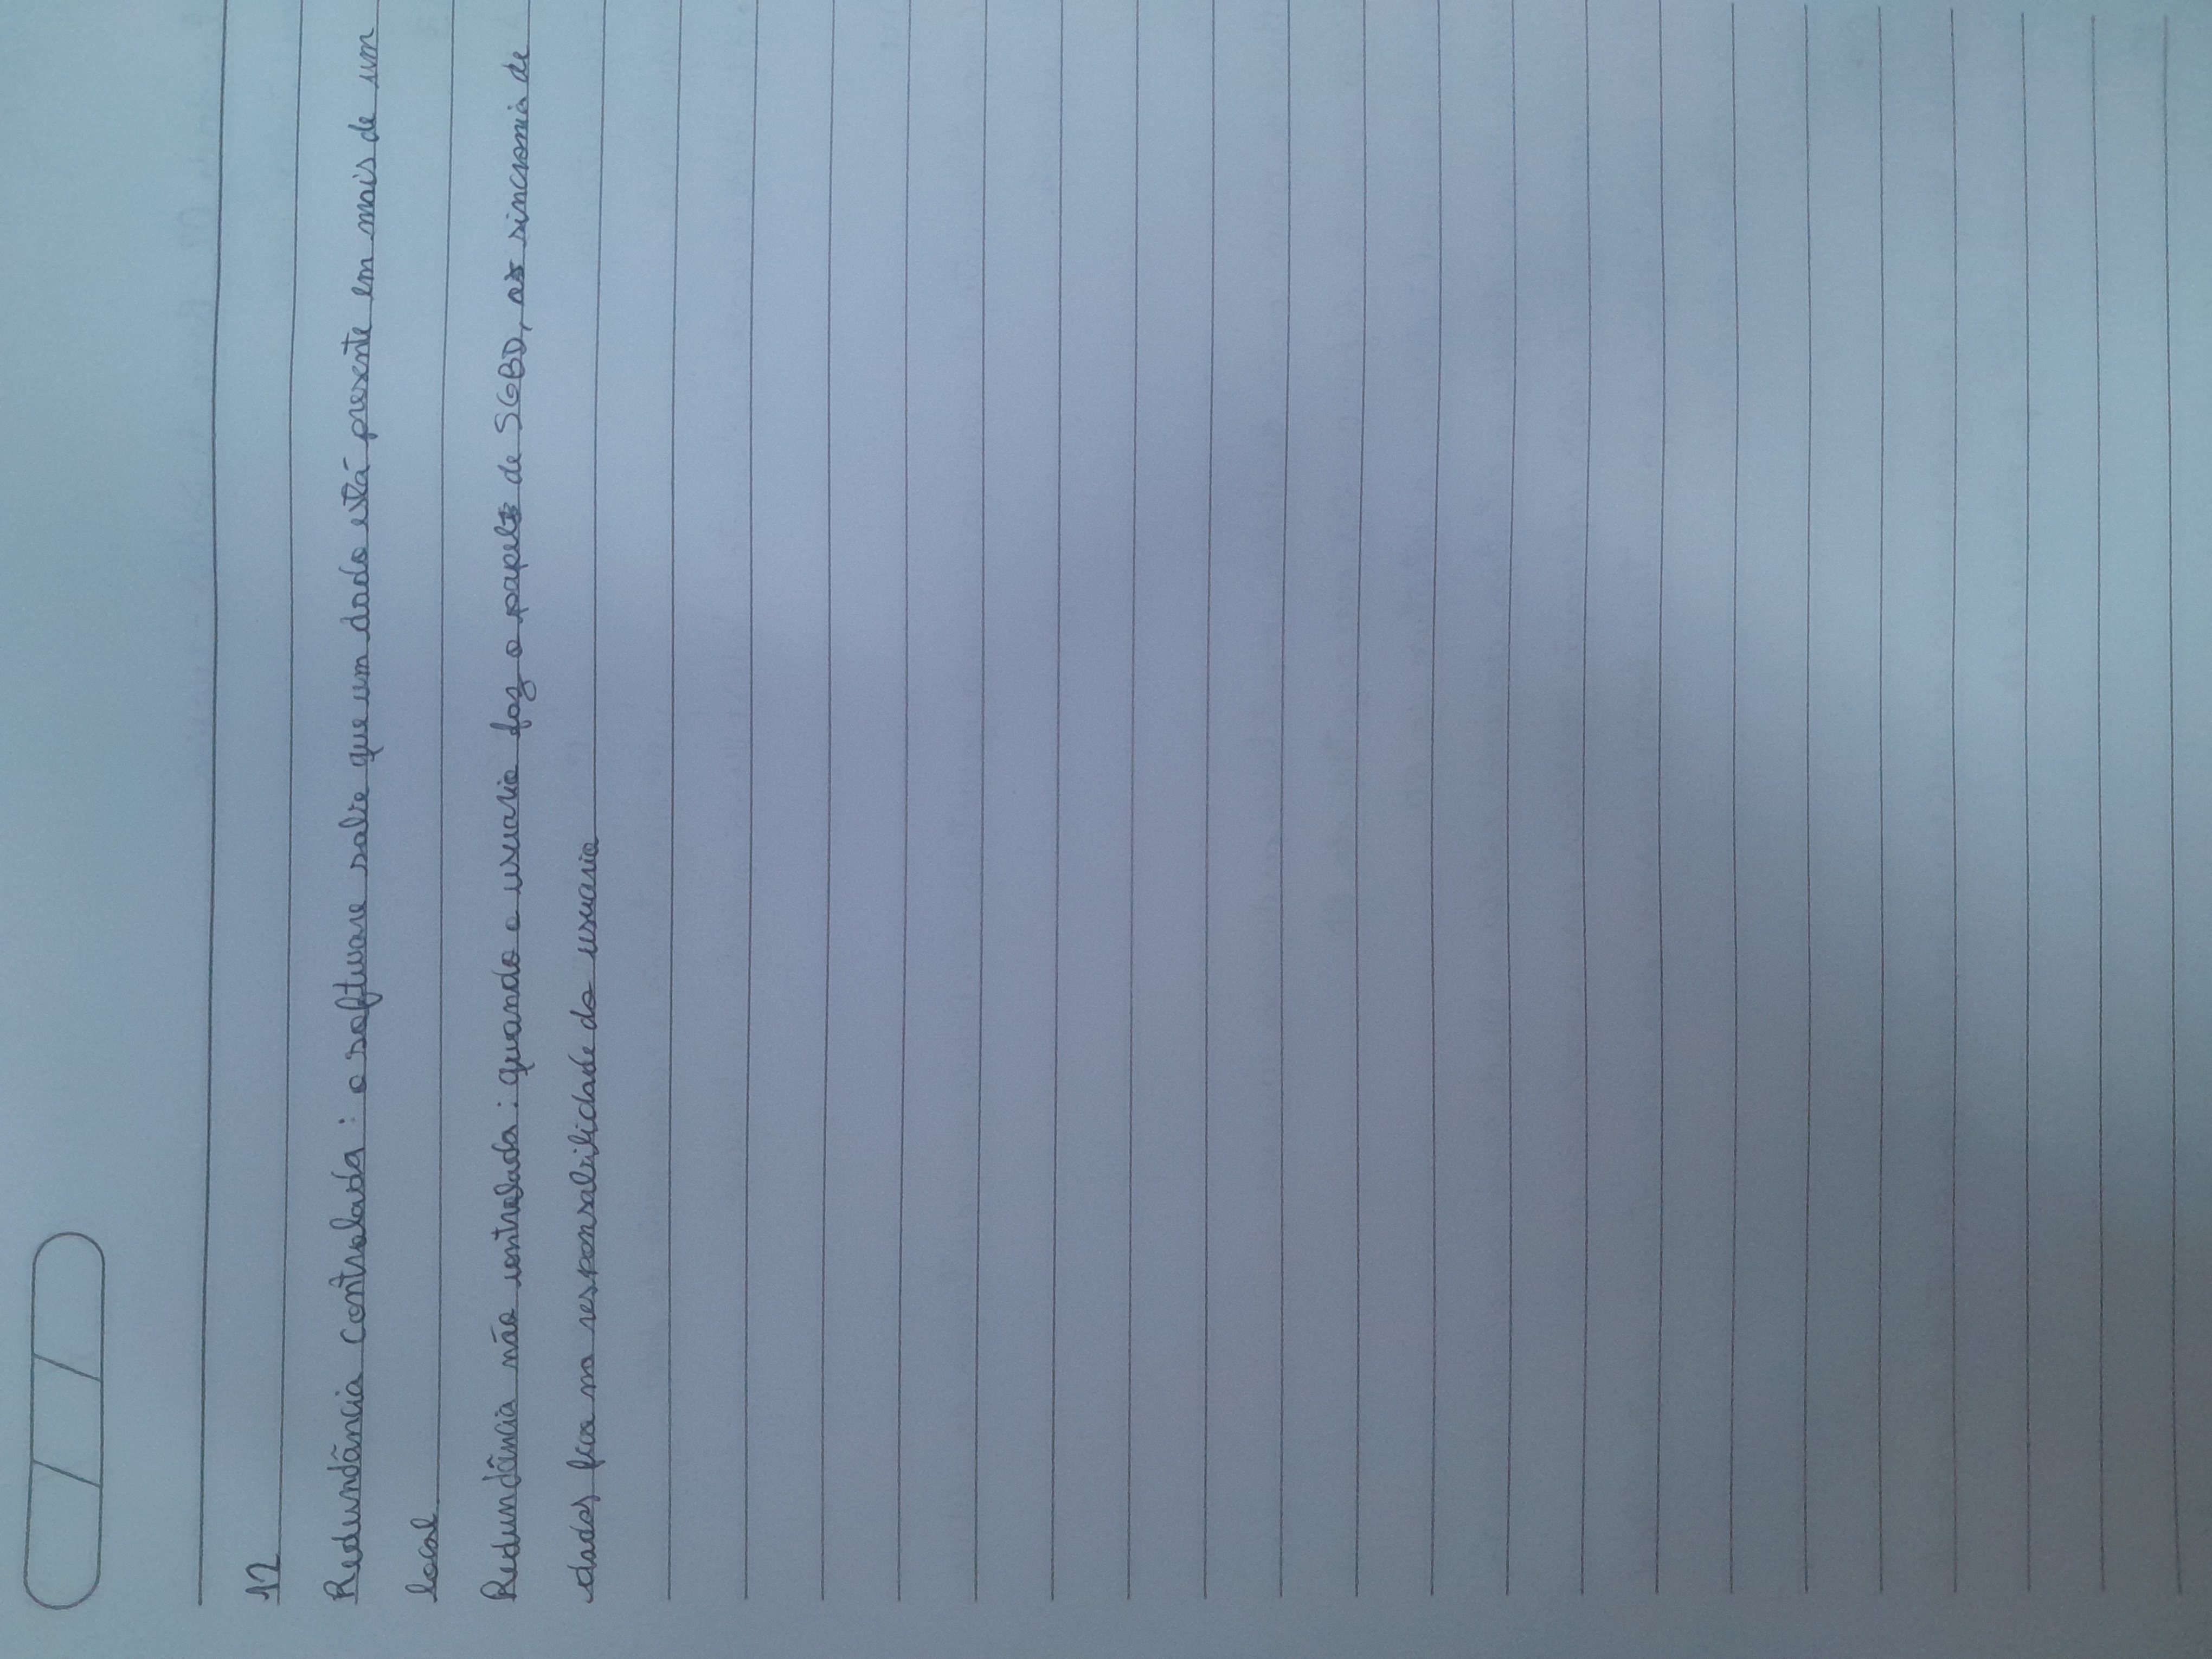 12
Redundância controlada: o software sabe que um dado está presente em mais de um
local
Redundância não controlada: quando o usuario faz o papel de SGBD, a sincronia de
dados fica na responsabilidade do usuario